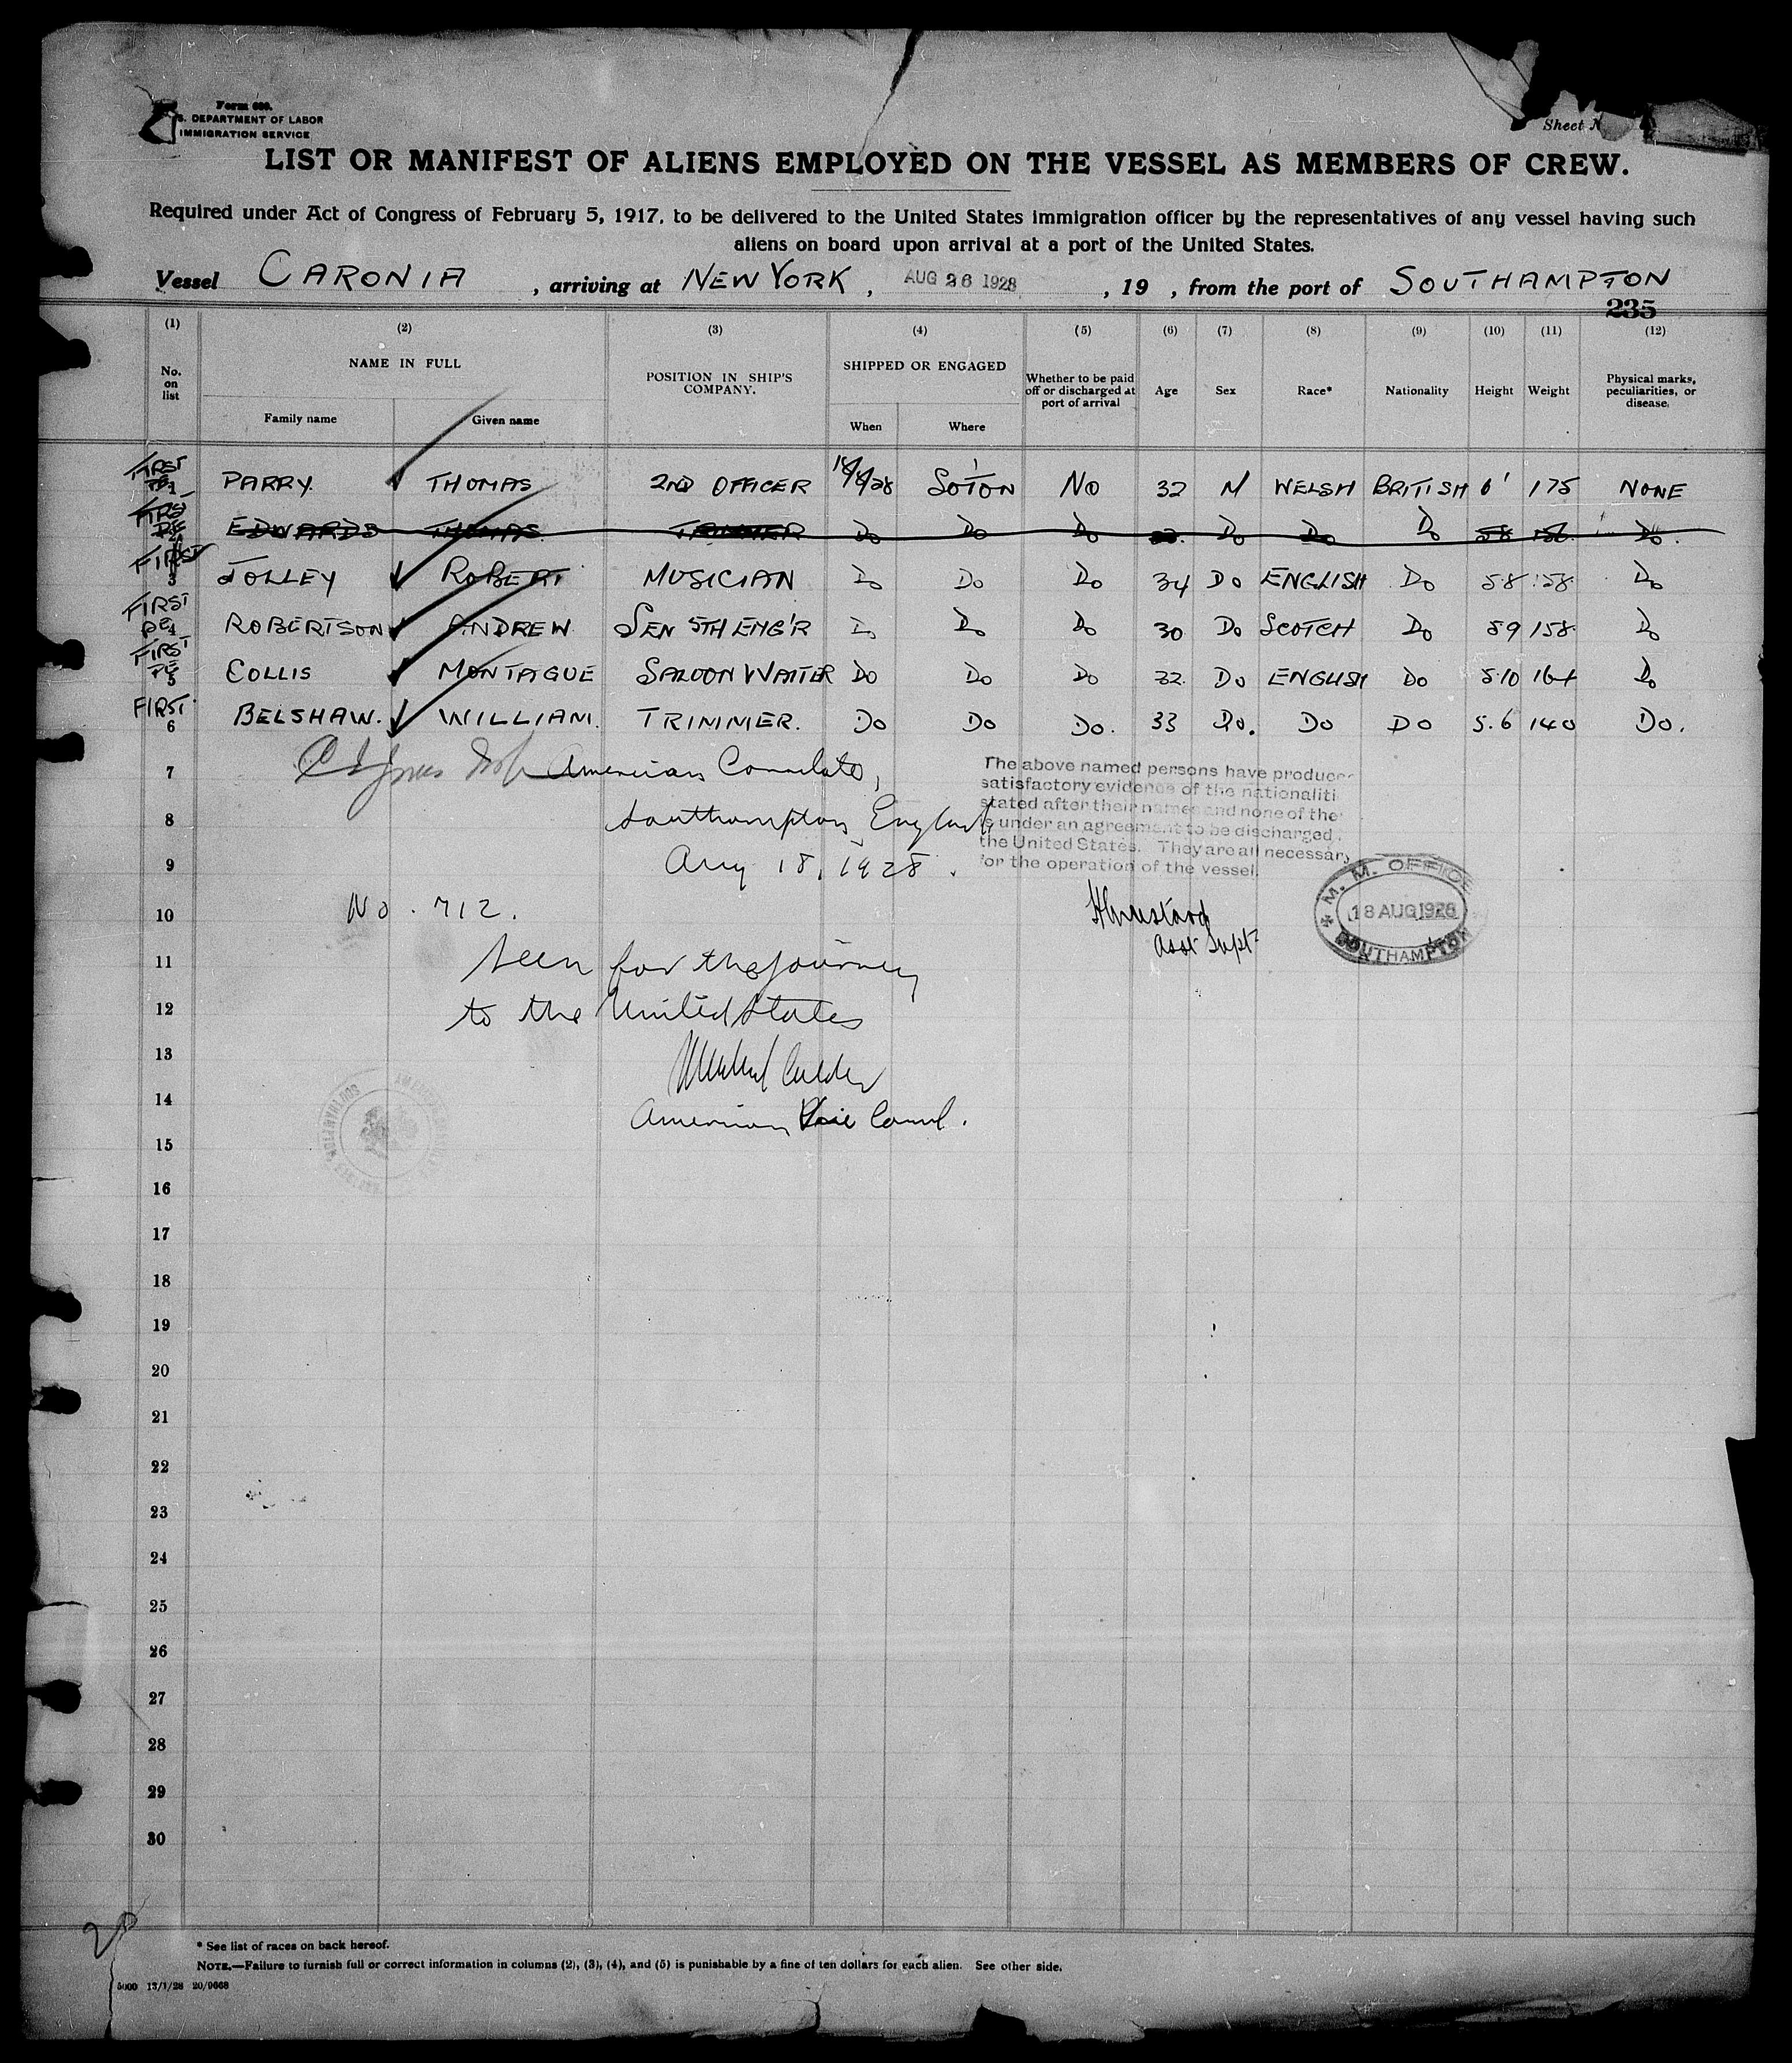 Form 680.
S. DEPARTMENT OF LABOR
IMMIGRATION SERVICE
Sheet N
LIST OR MANIFEST OF ALIENS EMPLOYED ON THE VESSEL AS MEMBERS OF CREW.
Required under Act of Congress of February 5, 1917, to be delivered to the United States immigration officer by the representatives of any vessel having such
aliens on board upon arrival at a port of the United States.
Vessel CARONIA , arriving at NEW YORK , AUG 26 1928 , 19 , from the port of SOUTHAMPTON
235
(1) (2) (3) (4) (5) (6) (7) (8) (9) (10) (11) (12)
No. on list NAME IN FULL POSITION IN SHIP'S COMPANY. SHIPPED OR ENGAGED Whether to be paid off or discharged at port of arrival Age Sex Race* Nationality Height Weight Physical marks, peculiarities, or disease.
Family name Given name When Where
FIRST 1 PARRY. THOMAS 2ND OFFICER 18/8/28 SOTON NO 32 M WELSH BRITISH 6' 175 NONE
EDWARDS THOMAS TRIMMER Do Do Do Do Do Do 58 Do.
FIRST 3 JOLLEY ROBERT MUSICIAN Do Do Do 34 Do ENGLISH Do 5.8 158 Do
FIRST 4 ROBERTSON ANDREW SEN 5TH ENG'R Do Do Do 30 Do SCOTCH Do 59 158 Do
FIRST 5 COLLIS MONTAGUE SALOON WAITER Do Do Do 32. Do ENGLISH Do 5.10 164 Do
FIRST 6 BELSHAW. WILLIAM. TRIMMER. Do Do Do. 33 Do. Do Do 5.6 140 Do.
7 American Consulate,
8 Southampton, England
9 Aug 18, 1928.
The above named persons have produce
satisfactory evidence of the nationaliti
stated after their names and none of the
is under an agreement to be discharged
the United States. They are all necessary
for the operation of the vessel.
10 No. 712.
Asst Supt
M. M. OFFICE
18 AUG 1928
SOUTHAMPTON
11 Seen for the journey
12 to the United States
13
14 American Vice Consul.
15
16
17
18
19
20
21
22
23
24
25
26
27
28
29
30
20
* See list of races on back hereof.
NOTE.—Failure to furnish full or correct information in columns (2), (3), (4), and (5) is punishable by a fine of ten dollars for each alien. See other side.
5000 13/1/28 20/9668